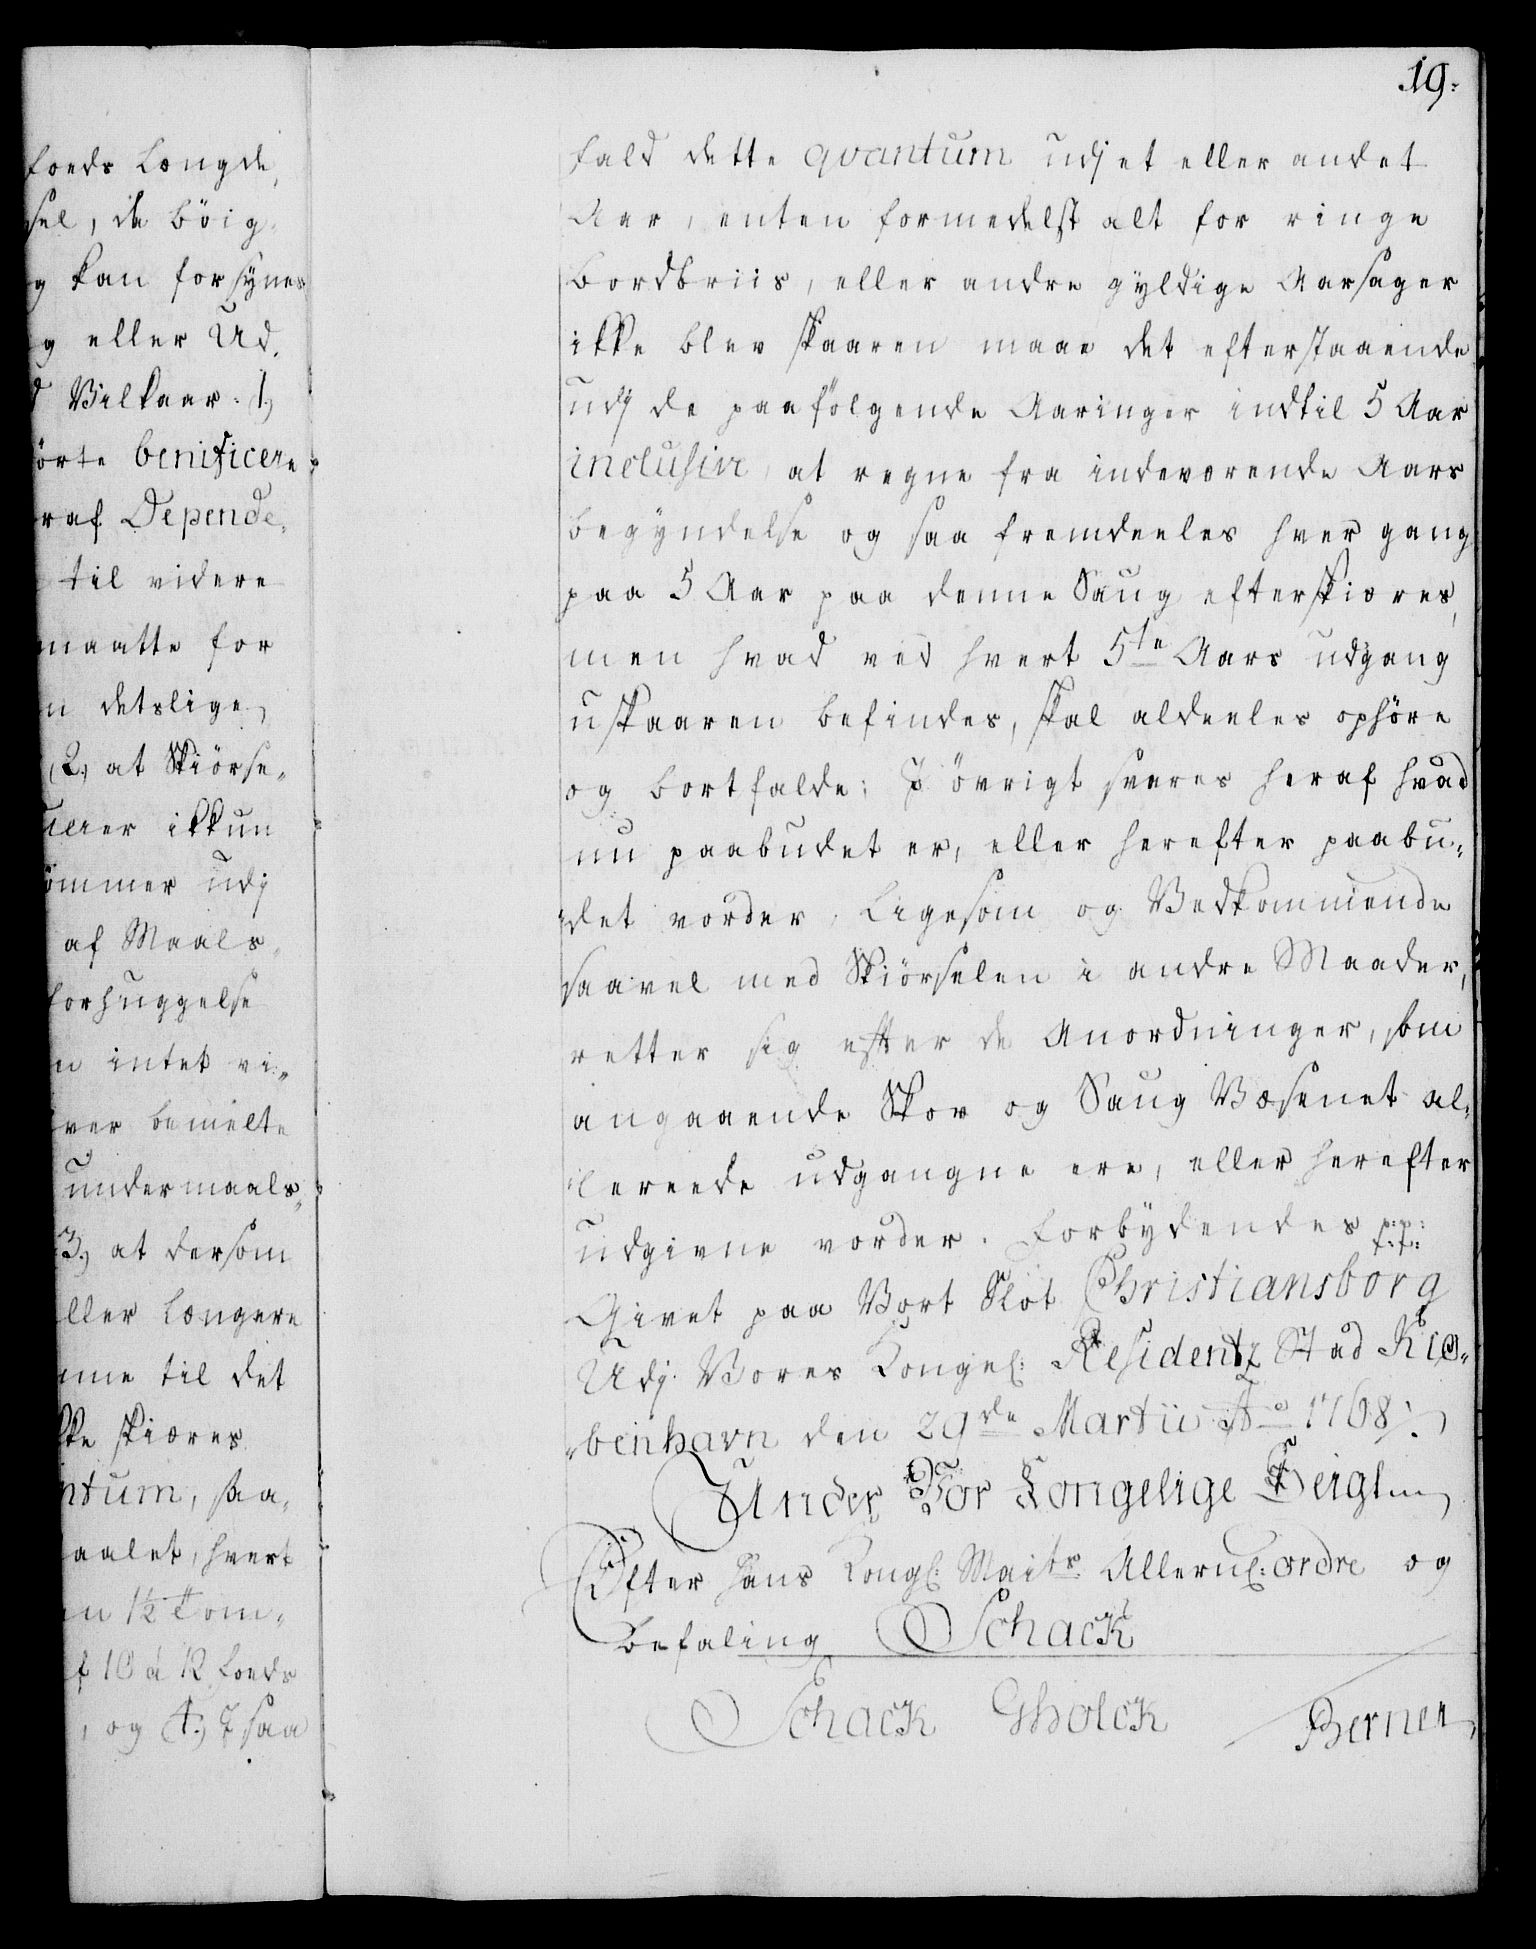 19.
foeds Længde,
sel, de böig-
g kan forsynes
g eller Ud-
d Vilkaar. 1)
örte benificere
raf Depende-
til videre
maatte for
n detslige
(2.) at Skiörse-
ikkun
ömmer udj
af Maals-
forhuggelse
n intet vi-
ver bemelte
undermaals-
3.) at dersom
ller Længere
nne til det
kke skiæres
ntum, saa-
aalet, hvert
n 1½ Tom-
f 10 á 12 foeds
, og 4.) I saa
fald dette qvantum udj et eller andet
Aar, enten formedelst alt for ringe
Bordbriis, eller andre gyldige Aarsager
ikke blev skaaren maae det efterstaaende
udj de paafölgende Aaringer indtil 5 Aar
inclusive, at regne fra indeværende Aars
begyndelse og saa fremdeeles hver gang
paa 5 Aar paa denne Saug efterskiæres,
men hvad ved hvert 5te Aars udgang
uskaaren befindes, skal aldeeles ophöre
og bortfalde; I övrigt svares heraf hvad
nu paabudet er, eller herefter paabu-
det vorder, Ligesom og Vedkommende
saavel med Skiörselen i andre Maader,
retter sig efter de Anordninger, som
angaaende Skov og Saug Væsenet al-
lereede udgangne ere, eller herefter
udgivne vorder. Forbydendes p:p:
f:f:
Givet paa Vort Slot Christiansborg
Udj Vores Kongel: Residentz Stad Kiø-
benhavn den 29de Martii Ao 1768.
Under Vor Kongelige Seigl
Efter Hans Kongl: Maits Allernl: ordre og
Befaling Schack
Schack Gholck Berner